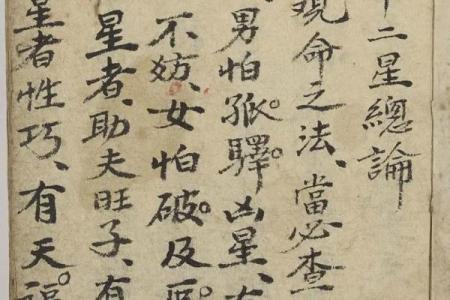 十二星總論
覌命之法、當必查
男怕孤。驛。凶星、
不妨、女怕破。及
星者、助夫旺子、有
星者性巧、有天福。